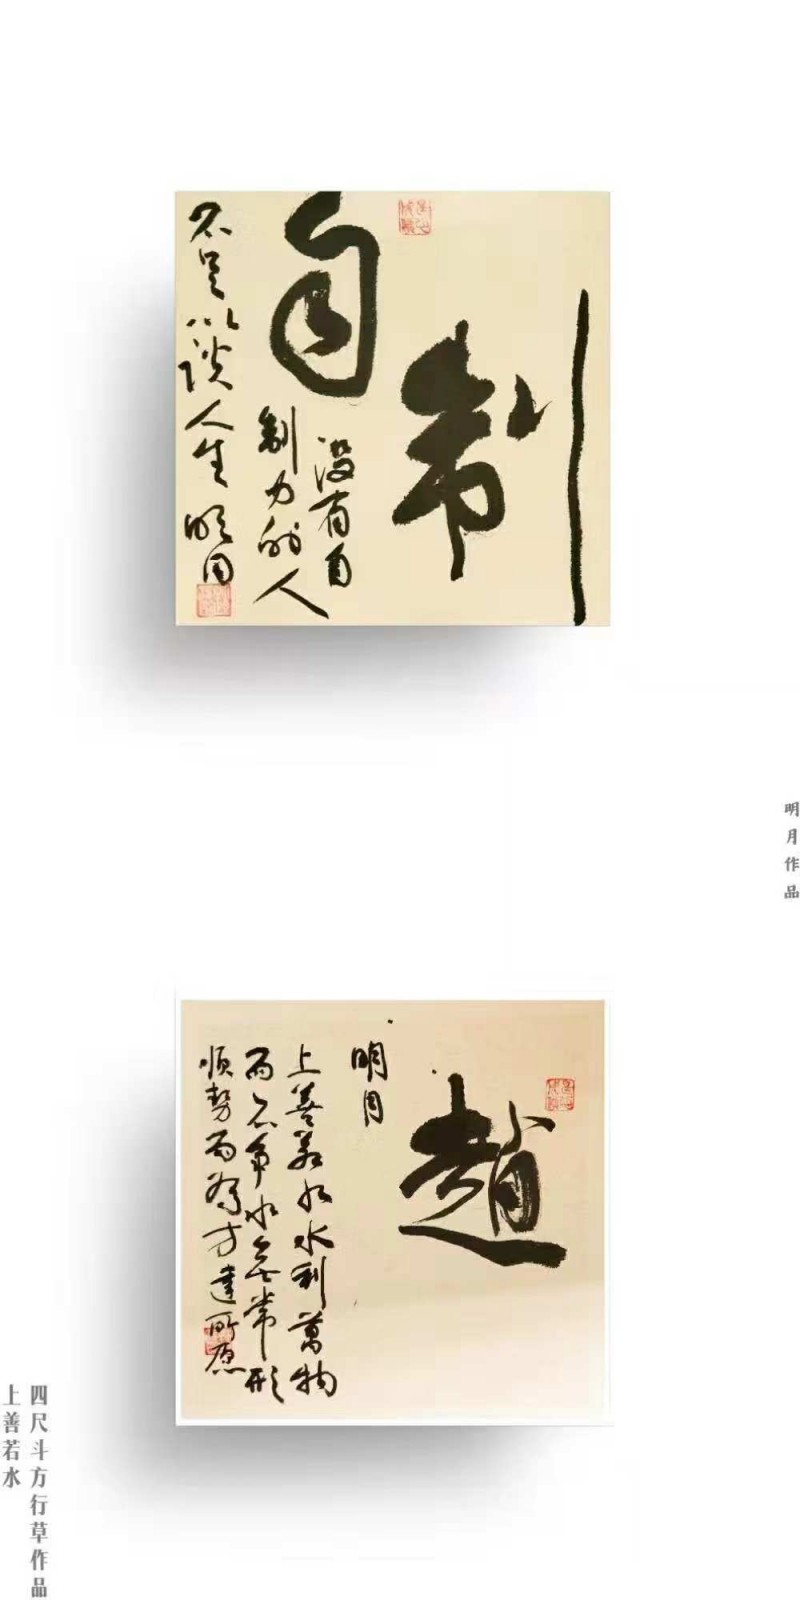 自制
没有自
制力的人
不足以谈人生 明月
明月作品
趙
明月
上善若水水利萬物
而不争水無常形
順势而為方達所愿
四尺斗方行草作品
上善若水